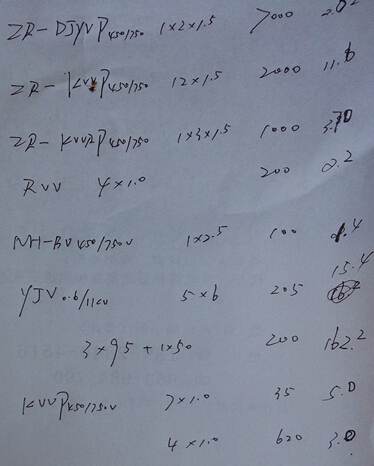 ZR-DJYVP450/750 1×2×1.5 7000 2.02
ZR-KVVP450/750 12×1.5 2000 11.6
ZR-KVVRP450/750 1×3×1.5 1000
RVV 4×1.0 200 2.2
NH-BV450/750V 1×2.5 100 1.4
YJV0.6/1KV 5×6 205 15.4
3×95+1×50 200 162.2
KVVP450/750V 7×1.0 35 5.0
4×1.0 620 3.0